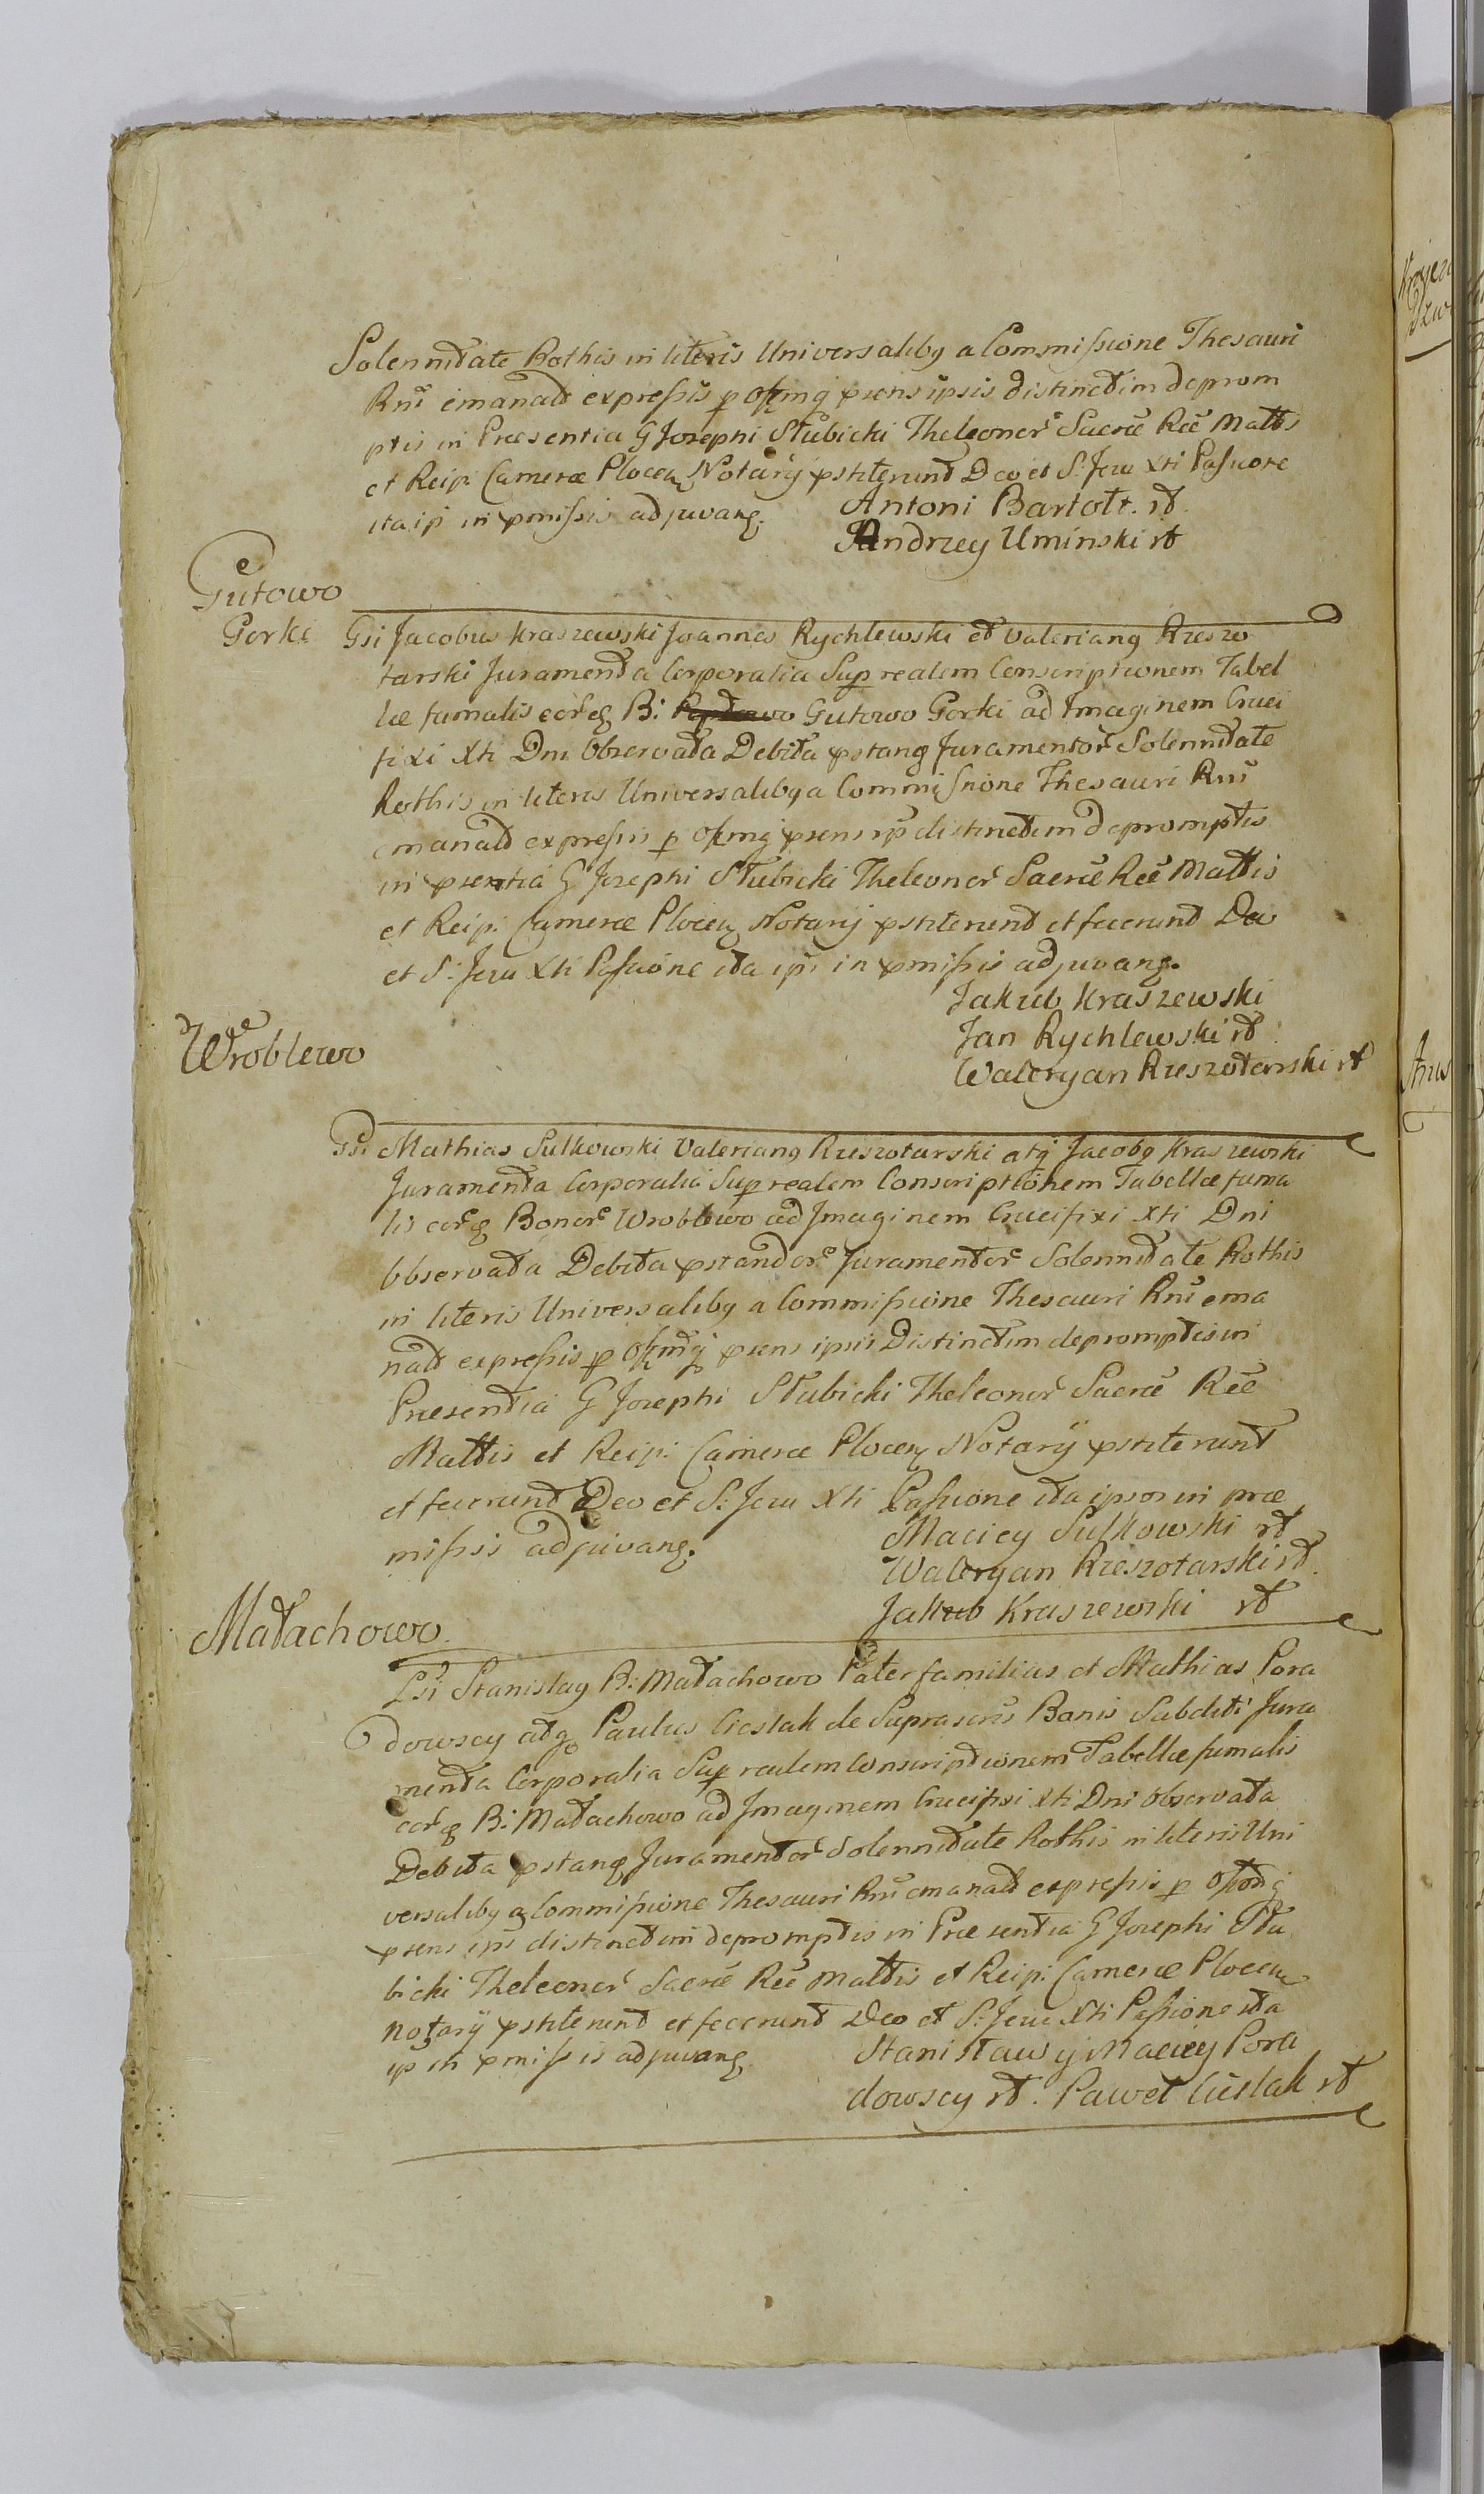 Solennitate Rothis in literis Universalibg a Commissione Thesauri
Rni emanatt expressis p Offmg prens ipsis distinctim deprom
ptis in Præsentia G Josephi Słubicki Theleoner Sacræ Ræ Mattis
et Reip: Cameræ Plocen Notarÿ pstiterunt Deo et S: Jesu Xti Passione
ita ip in pmissis adjuvang. Antoni Bartołt. rt.
Andrzey Uminski rt
Gutowo
Gorke
Gsi Jacobus Kraszewski Joannes Rychlewski et Valeriang Rzeszo
tarski Juramenta Corporalia Sup realem Conscriptionem Tabel
læ fumalis eorg B: Gutowo Gorki ad Imaginem Cruci
fixi Xti Dni Observata Debita pstang Juramentor Solennitate
Rothis in literis Universalibg a Commissione Thesauri Rni
emanatt expressis p Offmg prens ip distinctim depromptis
in prentia G Josephi Słubicki Theleoner Sacræ Ræ Mattis
et Reip: Cameræ Plocen Notarÿ pstiterunt et fecerunt Deo
et S: Jesu Xti Passione ita ips in pmissis adjuvang.
Jakub Kraszewski
Jan Rychlewski rt
Waleryan Rzeszotarski rt
Wroblewo
Gsi Mathias Sulkowski Valeriang Rzeszotarski atq Jacobg Kraszewski
Juramenta Corporalia Sup realem Conscriptionem Tabellæ fuma
lis eorg Bonor Wroblewo ad Imaginem Crucifixi Xti Dni
Observata Debita pstandor Juramentor Solennitate Rothis
in literis Universalibg a Commissione Thesauri Rni ema
natt expressis p Offmg prens ipsis Distinctim depromptis in
Præsentia G Josephi Słubicki Theleoner Sacræ Ræ
Mattis et Reip: Cameræ Plocen Notarÿ pstiterunt
et fecerunt Deo et S: Jesu Xti Passione ita ipsos in præ
missis adjuvang. Maciey Sulkowski rt
Waleryan Rzeszotarski rt.
Jakub Kraszewski rt
Małachowo
Lsi Stanislag B: Małachowo Paterfamilias et Mathias Pora
dowscy atq Paulus Cieslak de Suprascris Bonis Subditi Jura
menta Corporalia Sup realem Conscriptionem Tabellæ fumalis
eorg B: Małachowo ad Imaginem Crucifixi Xti Dni Observata
Debita pstang Juramentor Solennitate Rothis in literis Uni
versalibg a Commissione Thesauri Rni emanatt expressis p Offmg
prens ips distinctim depromptis in Præsentia G Josephi Słu
bicki Theleoner Sacræ Ræ Mattis et Reip: Cameræ Plocen
Notarÿ pstiterunt et fecerunt Deo et S: Jesu Xti Passione ita
ip in pmissis adjuvang. Stanisław y Maciey Pora
dowscy rt. Paweł Cieslak rt